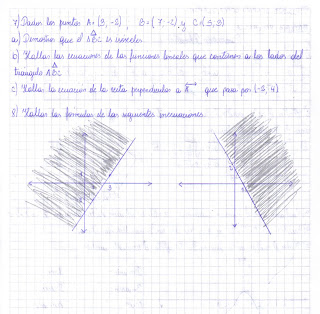 7) Dados los puntos A=(3,-2), B=(7,-2) y C=(5,3)
a) Demostrar que el ABC es isósceles.
b) Hallar las ecuaciones de las funciones lineales que contienen a los lados del
triángulo ABC
c) Hallar la ecuación de la recta perpendicular a que pasa por (-2, 4)
8) Hallar las fórmulas de las siguientes inecuaciones:
3
3